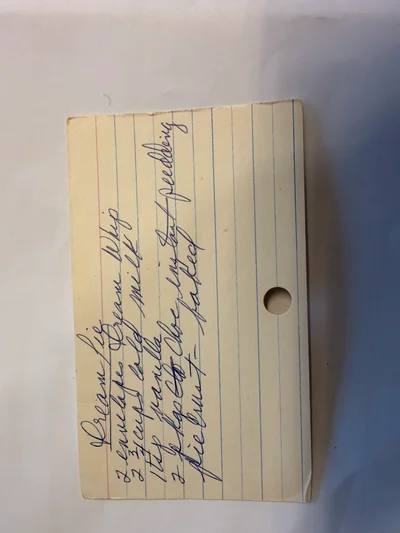 Dream Pie
2 envelopes Dream Whip
2 3/4 cups cold milk
1 tsp vanilla
2 pkgs Choc instant pudding
pie crust - baked